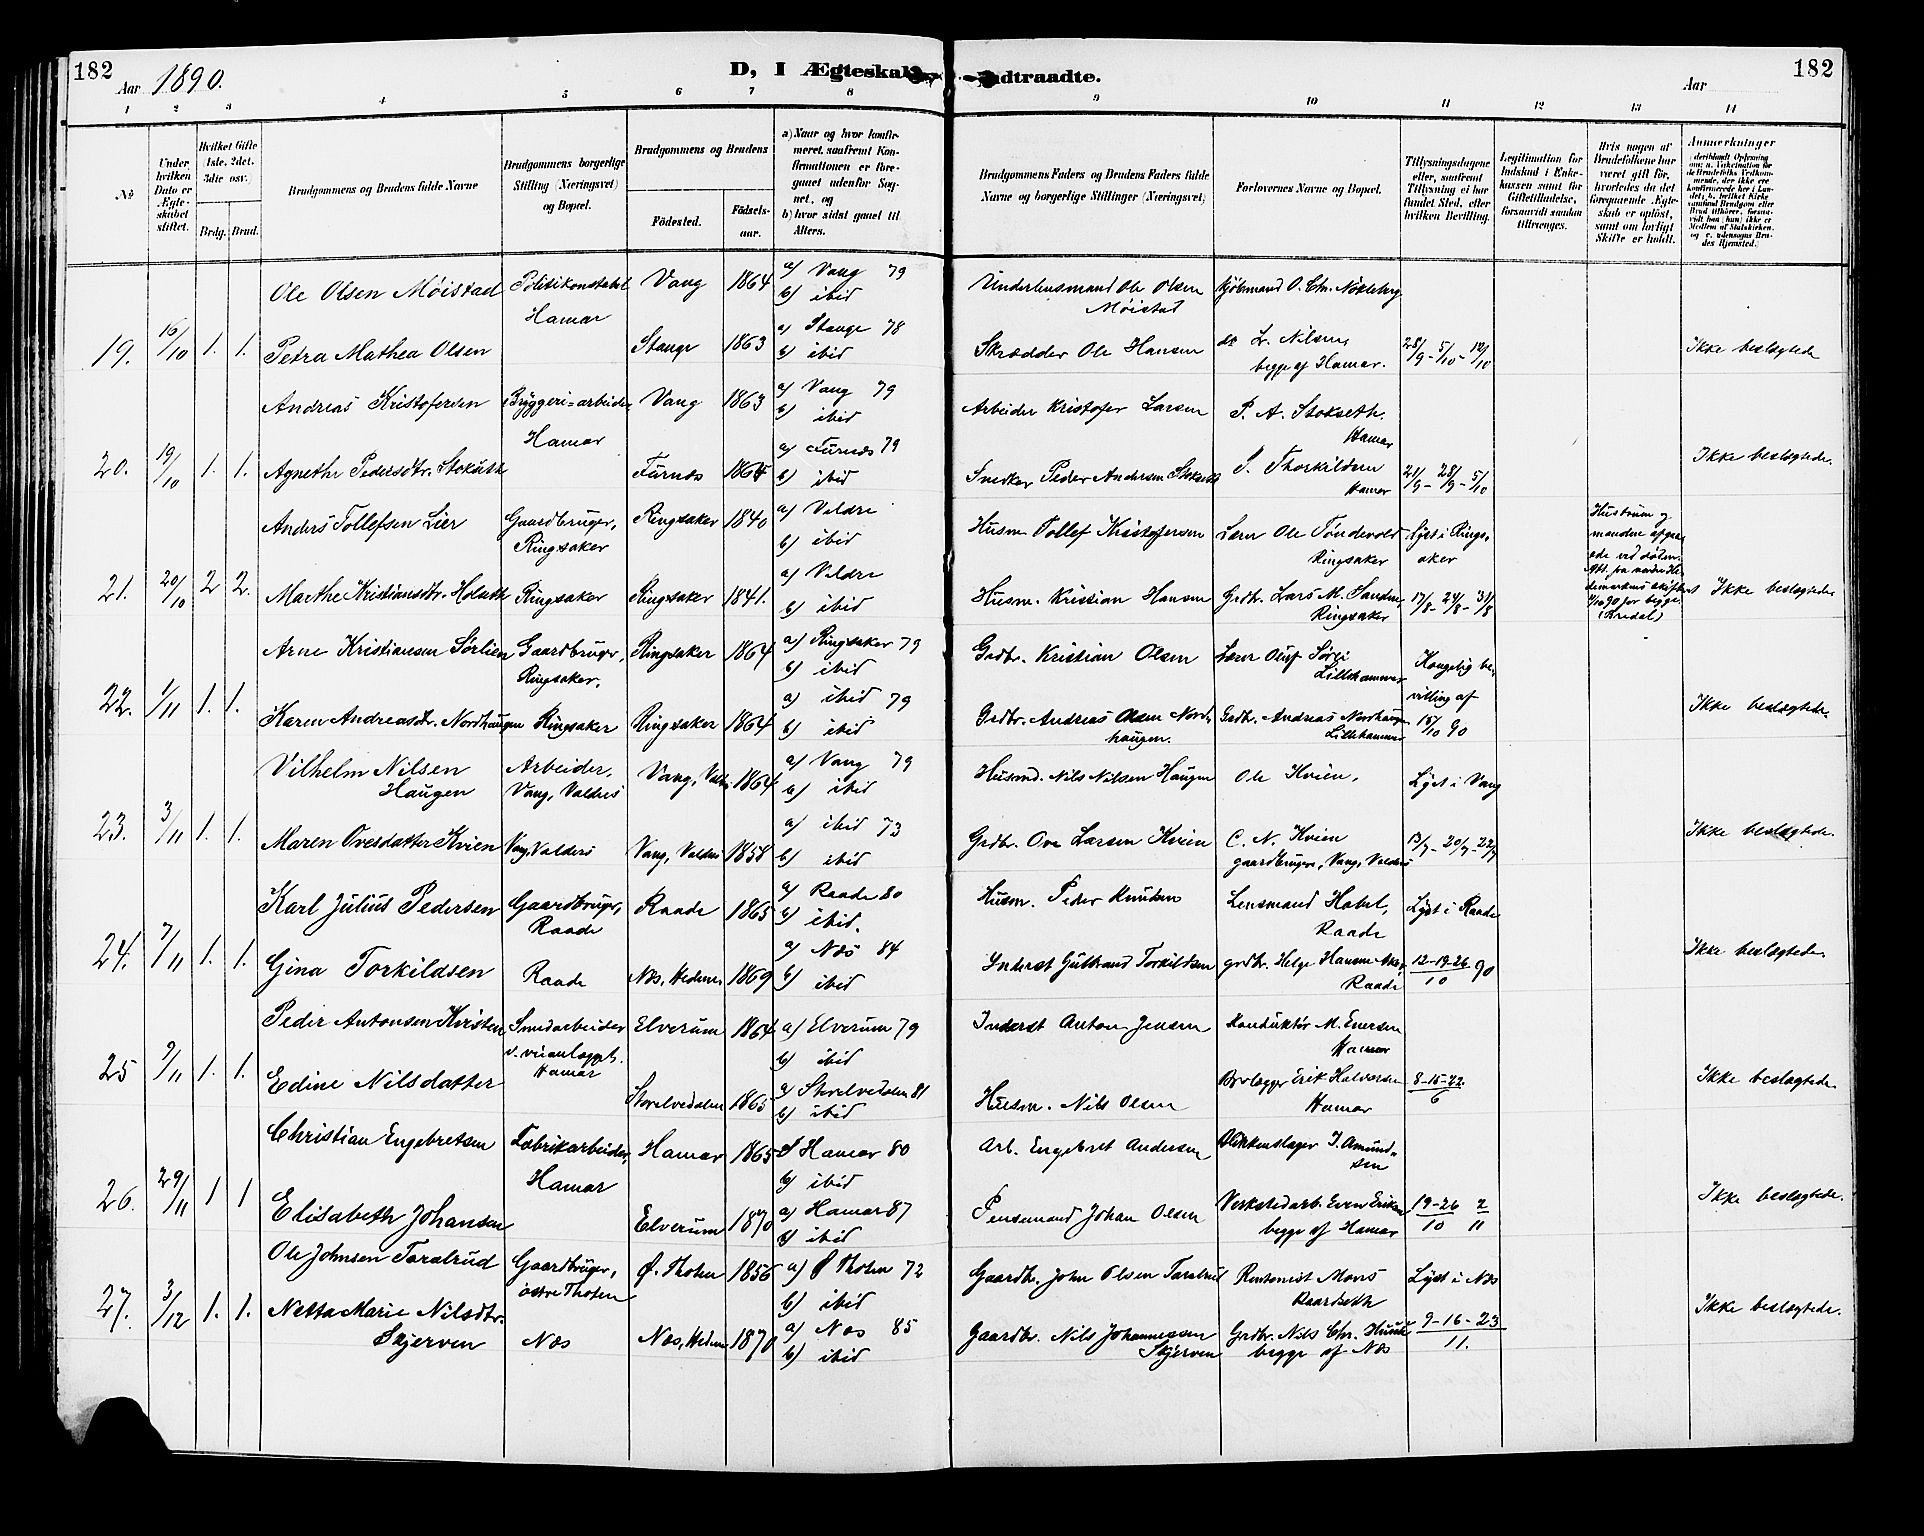 182
Aar 1890.
D, I Ægteskab
ndtraadte.
Aar
182
1 2 3 4 5 6 7 8 9 10 11 12 13 14
No
Under hvilken Dato er Ægteskabet stiftet.
Hvilket Gifte 1ste, 2det, 3die osv.
Brdg. Brud.
Brudgommens og Brudens fulde Navne
Brudgommens borgerlige Stilling (Næringsvei) og Bopæl.
Brudgommens og Brudens
Fødested.
Fødselsaar.
a) Naar og hvor konfirmeret, saafremt Konfirmationen er foregaaet udenfor Sognet, og
b) hvor sidst gaaet til Alters.
Brudgommens Faders og Brudens Faders fulde Navne og borgerlige Stillinger (Næringsvei)
Forlovernes Navne og Bopæl.
Tillysningsdagene eller, saafremt Tillysning ei har fundet Sted, efter hvilken Bevilling.
Legitimation for Indskud i Enkekassen samt for Giftetilladelse, forsaavidt saadan tiltrænges.
Hvis nogen af Brudefolkene har været gift før, hvorledes da det foregaaende Ægteskab er opløst, samt om lovligt Skifte er holdt.
Anmerkninger
Ole Olsen Møistad Politikonstabel Vang 1864 a) Vang 79 Underlensmand Ole Olsen Kjøbmand O. Chr. Nøkleberg
Hamar b) ibid Møistad
19. 16/10 1. 1. Petra Mathea Olsen Stange 1863 a) Stange 78 Skrædder Ole Hansen do L. Nilsen, 28/9 - 5/10 - 12/10 Ikke beslægtede
b) ibid begge af Hamar.
Andreas Kristofersen Bryggeri=arbeider Vang 1863 a) Vang 79 Arbeider Kristofer Larsen P. A. Stokseth.
Hamar b) ibid Hamar
20. 19/10 1. 1. Agnethe Pedersdtr. Stokseth Furnes 1864 a) Furnes 79 Snedker Peder Andersen Stokseth P. Thorkildsen 21/9 - 28/9 - 5/10 Ikke beslægtede.
b) ibid Hamar
Anders Tollefsen Lier Gaardbruger, Ringsaker 1840 a) Veldre Husm. Tollef Kristofersen Lærer Ole Tøndevold Lyst i Ringsaker Hustrun og manden afgaaede ved døden.
Ringsaker b) ibid Ringsaker
21. 20/10 2 2. Marthe Kristiansdtr. Holseth Ringsaker Ringsaker 1841. a) Veldre Husm. Kristian Hansen Grdbr. Lars M. Sanden, 17/8 - 24/8 - 31/8 Ikke beslægtede
b) ibid Ringsaker
Arne Kristiansen Sørlien Gaardbruger, Ringsaker 1864 a) Ringsaker 79 Grdbr. Kristian Olsen Lærer Oluf Sørli Kongelig bevilling af
Ringsaker. b) ibid Lillehammer
22. 1/11 1. 1. Karen Andreasdtr. Nordhaugen Ringsaker Ringsaker 1864 a) ibid 79 Grdbr. Andreas Olsen Nordhaugen. Grdbr. Andreas Nordhaugen 15/10 90 Ikke beslægtede.
b) ibid Lillehammer
Vilhelm Nilsen Arbeider, Vang, Vald. 1864 a) Vang 79 Husmd. Nils Nilsen Haugen Ole Kvien, Lyst i Vang
Haugen Vang, Valdres a) ibid
23. 3/11 1. 1. Maren Ovesdatter Kvien Vang, Valders Vang, Valdres 1858 a) ibid 73 Grdbr. Ove Larsen Kvien C. N. Kvien 13/7 - 20/7 - 27/7 Ikke beslægtede.
b) ibid gaardbrugere, Vang, Valdres
Karl Julius Pedersen Gaardbruger, Raade 1865 a) Raade 80 Husm. Peder Knudsen Lensmand Habel, Lyst i Raade
Raade b) ibid. Raade
24. 7/11 1. 1. Gina Torkildsen Raade Næs, Hedem. 1869 a) Næs 84 Inderst Gulbrand Torkildsen grdbr. Helge Hansen 12-19-26/10 90 Ikke beslægtede.
b) ibid Raade
Peder Antonsen Kvisten Smedarbeider Elverum 1864 a) Elverum 79 Inderst Anton Jensen Konduktør M. Enersen
Hamar b) ibid Hamar
25 9/11 1. 1. Edine Nilsdatter Storelvedalen 1865 a) Storelvedalen 81 Husm. Nils Olsen Erik Halvorsen 8-15-22/6 Ikke beslægtede.
b) ibid Hamar
Christian Engebretsen Fabrikarbeider, Hamar 1865 a) Hamar 80 Arb. Engebret Andersen Blikkenslager J. Amundsen
Hamar b) ibid
26. 29/11 1 1 Elisabeth Johansen Elverum 1870 a) Hamar 87 Pensmand Johan Olsen Verkstedarb. Even Eriksen 19-26/10 2/11 Ikke beslægtede.
b) ibid begge af Hamar
Ole Johnsen Taralrud Gaardbruger, Ø. Thoten 1856 a) Ø Thoten 72 Gaardbr. John Olsen Taralrud Rentenist Mons Lyst i Næs
østre Thoten b) ibid Kaardseth
27. 3/12 1. 1. Netta Marie Nilsdtr. Næs Næs, Hedem 1870 a) Næs 85 Gaardbr. Nils Johannessen Grdbr. Nils Chr. 9-16-23/11. Ikke beslægtede.
Skjerven b) ibid Skjerven begge af Næs